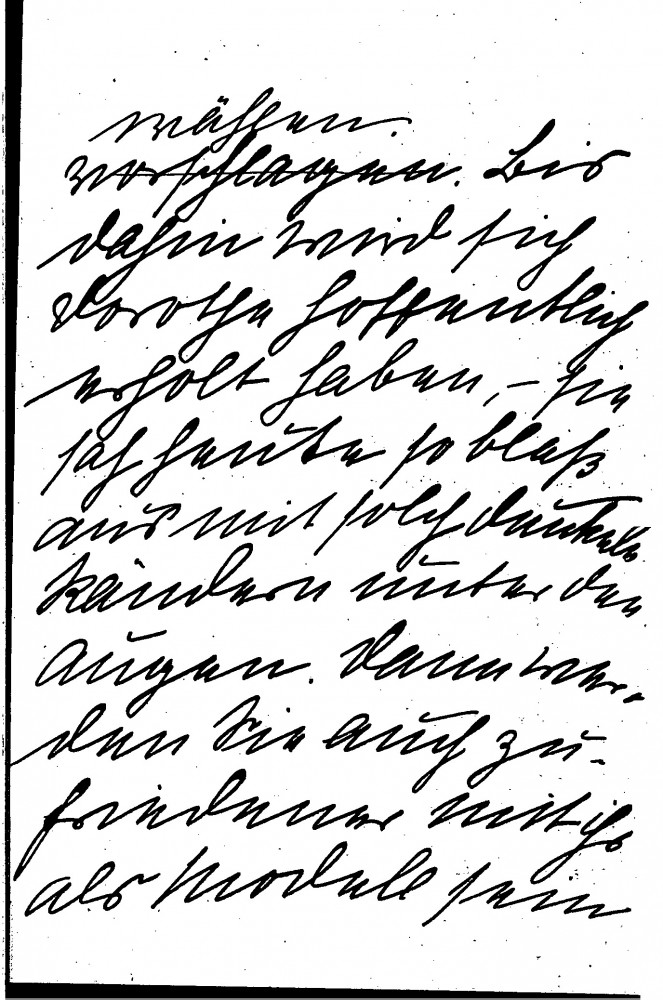 wählen.
vorschlagen. Bis
dahin wird sich
Dorothe hoffentlich
erholt haben, – sie
sah heute so blaß
aus mit solch dunkeln
Rändern unter den
Augen. Dann wer-
den Sie auch zu-
friedener mit ihr
als Modell sein